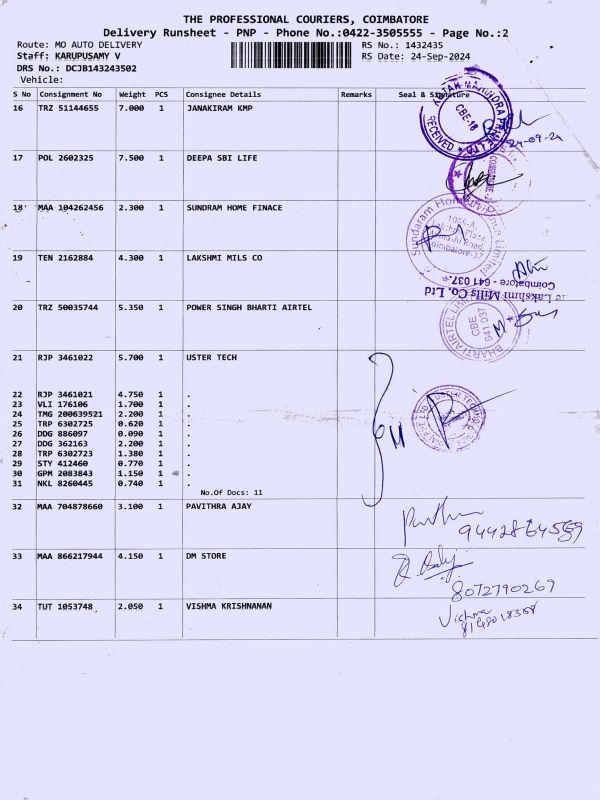 THE PROFESSIONAL COURIERS, COIMBATORE
Delivery Runsheet - PNP - Phone No.:0422-3505555 - Page No.:2
Route: MO AUTO DELIVERY RS No.: 1432435
Staff: KARUPUSAMY V RS Date: 24-Sep-2024
DRS No.: DCJB143243502
Vehicle:
S No Consignment No Weight PCS Consignee Details Remarks Seal & Signature
16 TRZ 51144655 7.000 1 JANAKIRAM KMP
RECEIVED CBE-18
24-09-24
17 POL 2602325 7.500 1 DEEPA SBI LIFE
18 MAA 104262456 2.300 1 SUNDRAM HOME FINACE
Sundaram Home Finance Limited
19 TEN 2162884 4.300 1 LAKSHMI MILS CO
The Lakshmi Mills Co. Ltd
Coimbatore - 641 037.
20 TRZ 50035744 5.350 1 POWER SINGH BHARTI AIRTEL
BHARTI AIRTEL LIMITED
CBE
641 037
21 RJP 3461022 5.700 1 USTER TECH
22 RJP 3461021 4.750 1 .
23 VLI 176106 1.700 1 .
24 TMG 200639521 2.200 1 .
25 TRP 6302725 0.620 1 .
26 DDG 886097 0.090 1 .
27 DDG 362163 2.200 1 .
28 TRP 6302723 1.380 1 .
29 STY 412460 0.770 1 .
30 GPM 2083843 1.150 1 .
31 NKL 8260445 0.740 1 .
No.Of Docs: 11
11
32 MAA 704878660 3.100 1 PAVITHRA AJAY
33 MAA 866217944 4.150 1 DM STORE
8072790269
34 TUT 1053748 2.050 1 VISHMA KRISHNANAN
Vishma